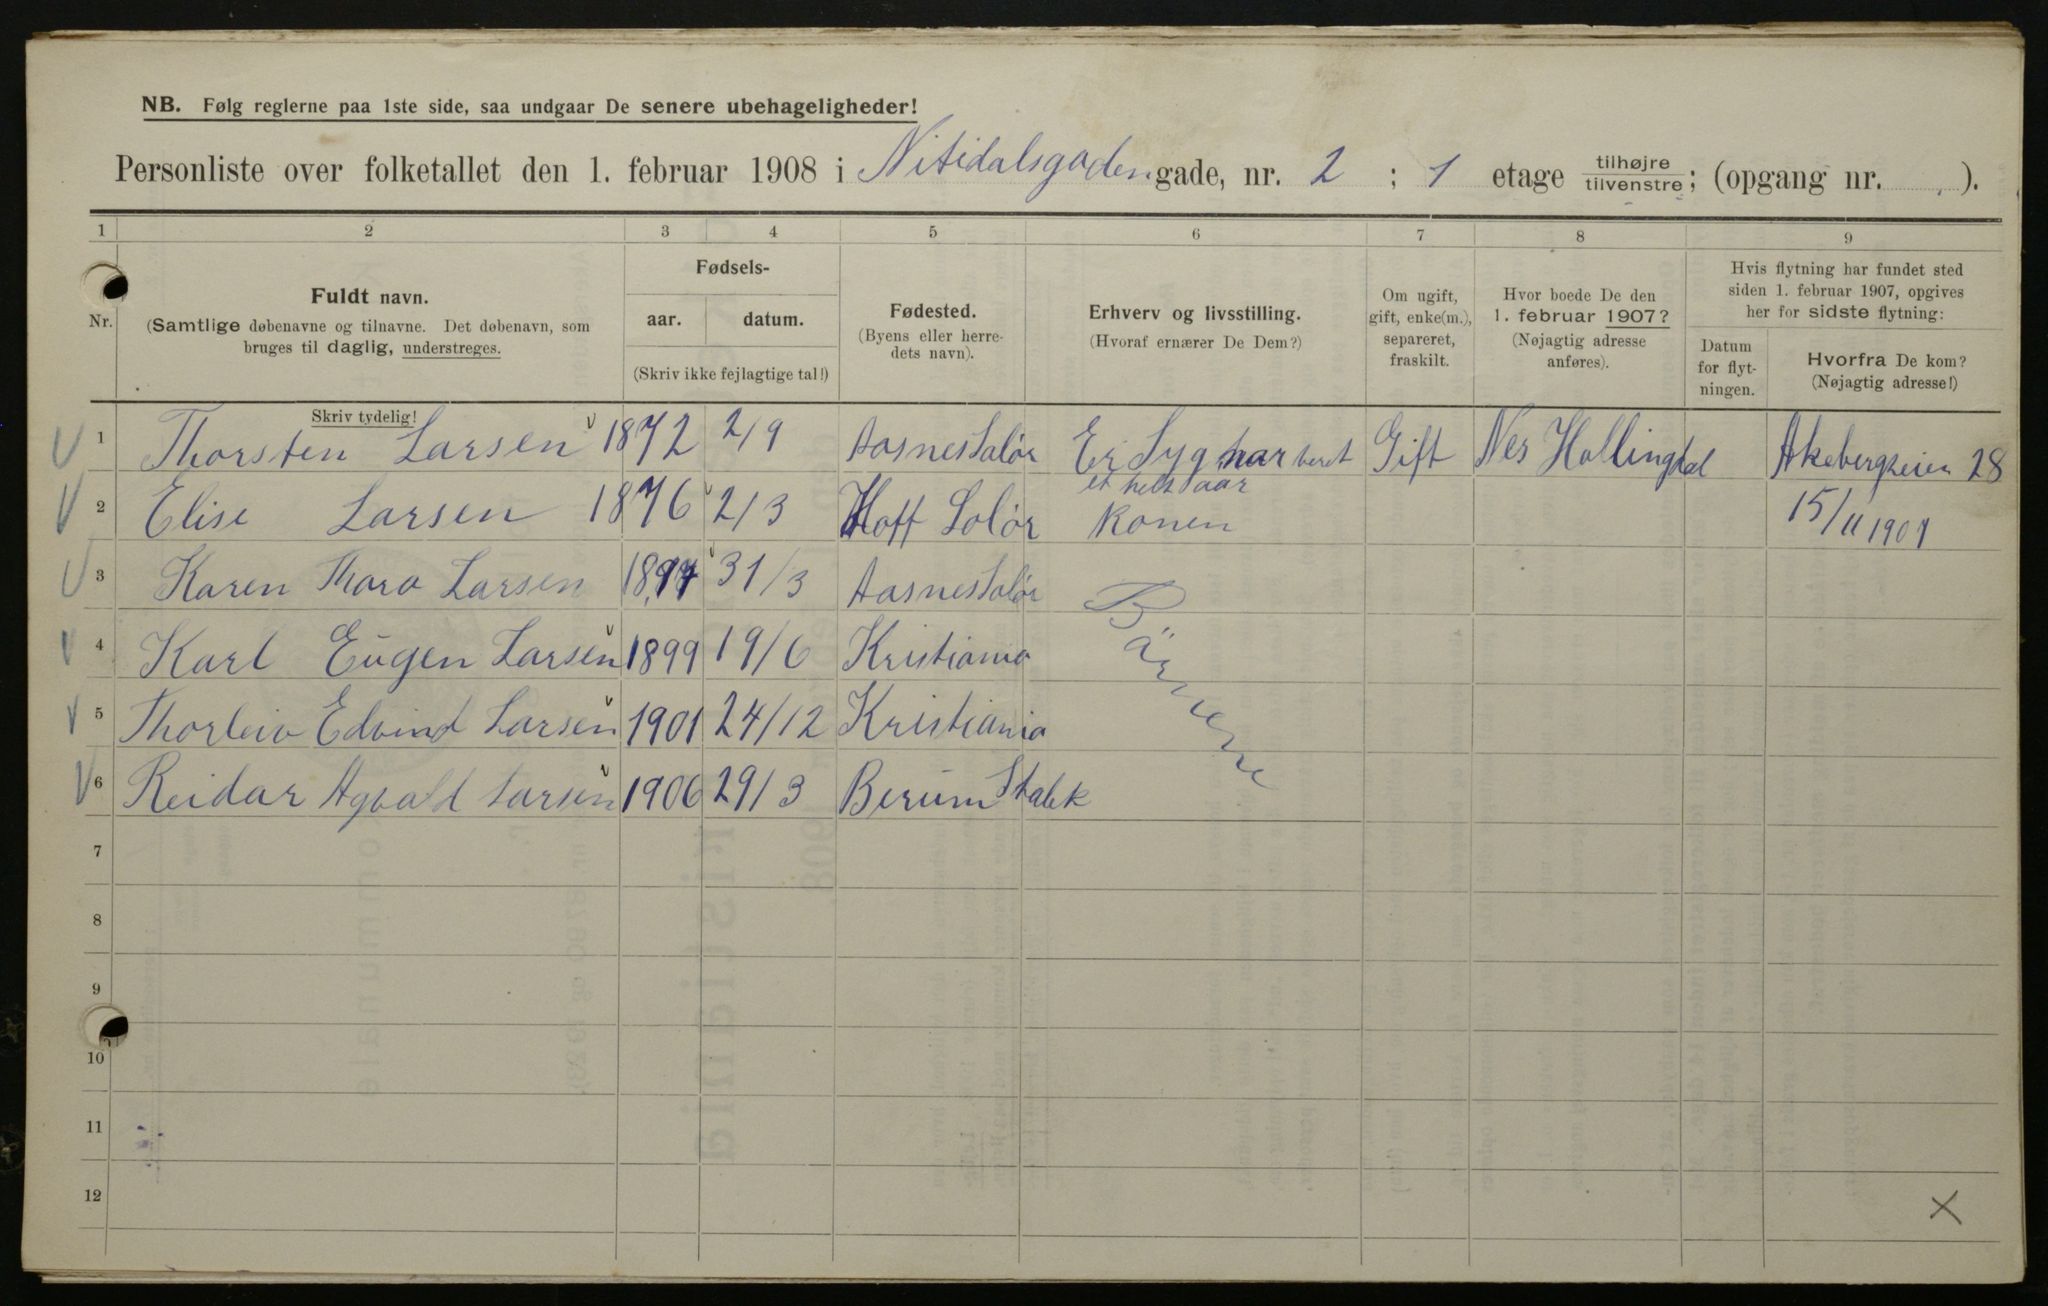 NB. Følg reglerne paa 1ste side, saa undgaar De senere ubehageligheder!
Personliste over folketallet den 1. februar 1908 i Nitidalsgaden gade, nr. 2 ; 1 etage tilhøjre tilvenstre; (opgang nr. ).
1 2 3 4 5 6 7 8 9
Nr.
Fuldt navn.
(Samtlige døbenavne og tilnavne. Det døbenavn, som
bruges til daglig, understreges.
Skriv tydelig!
Fødsels-
aar. datum.
(Skriv ikke fejlagtige tal!)
Fødested.
(Byens eller herre-
dets navn).
Erhverv og livsstilling.
(Hvoraf ernærer De Dem?)
Om ugift,
gift, enke(m.),
separeret,
fraskilt.
Hvor boede De den
1. februar 1907?
(Nøjagtig adresse
anføres).
Hvis flytning har fundet sted
siden 1. februar 1907, opgives
her for sidste flytning:
Datum
for flyt-
ningen.
Hvorfra De kom?
(Nøjagtig adresse!)
1 Thorsten Larsen 1872 2/9 Aasnes Solør Er Syg har veret Gift Nes Hallingdal Akebergveien 28
et helt aar
2 Elise Larsen 1876 2/3 Hoff Solør Konen 15/11 1907
3 Karen Thora Larsen 1897 31/3 Aasnes Solør Bärnene
4 Karl Eugen Larsen 1899 19/6 Kristiania
5 Thorleiv Edvind Larsen 1901 24/12 Kristiania
6 Reidar Agvald Larsen 1906 29/3 Berum Stabk
7
8
9
10
11
12
X